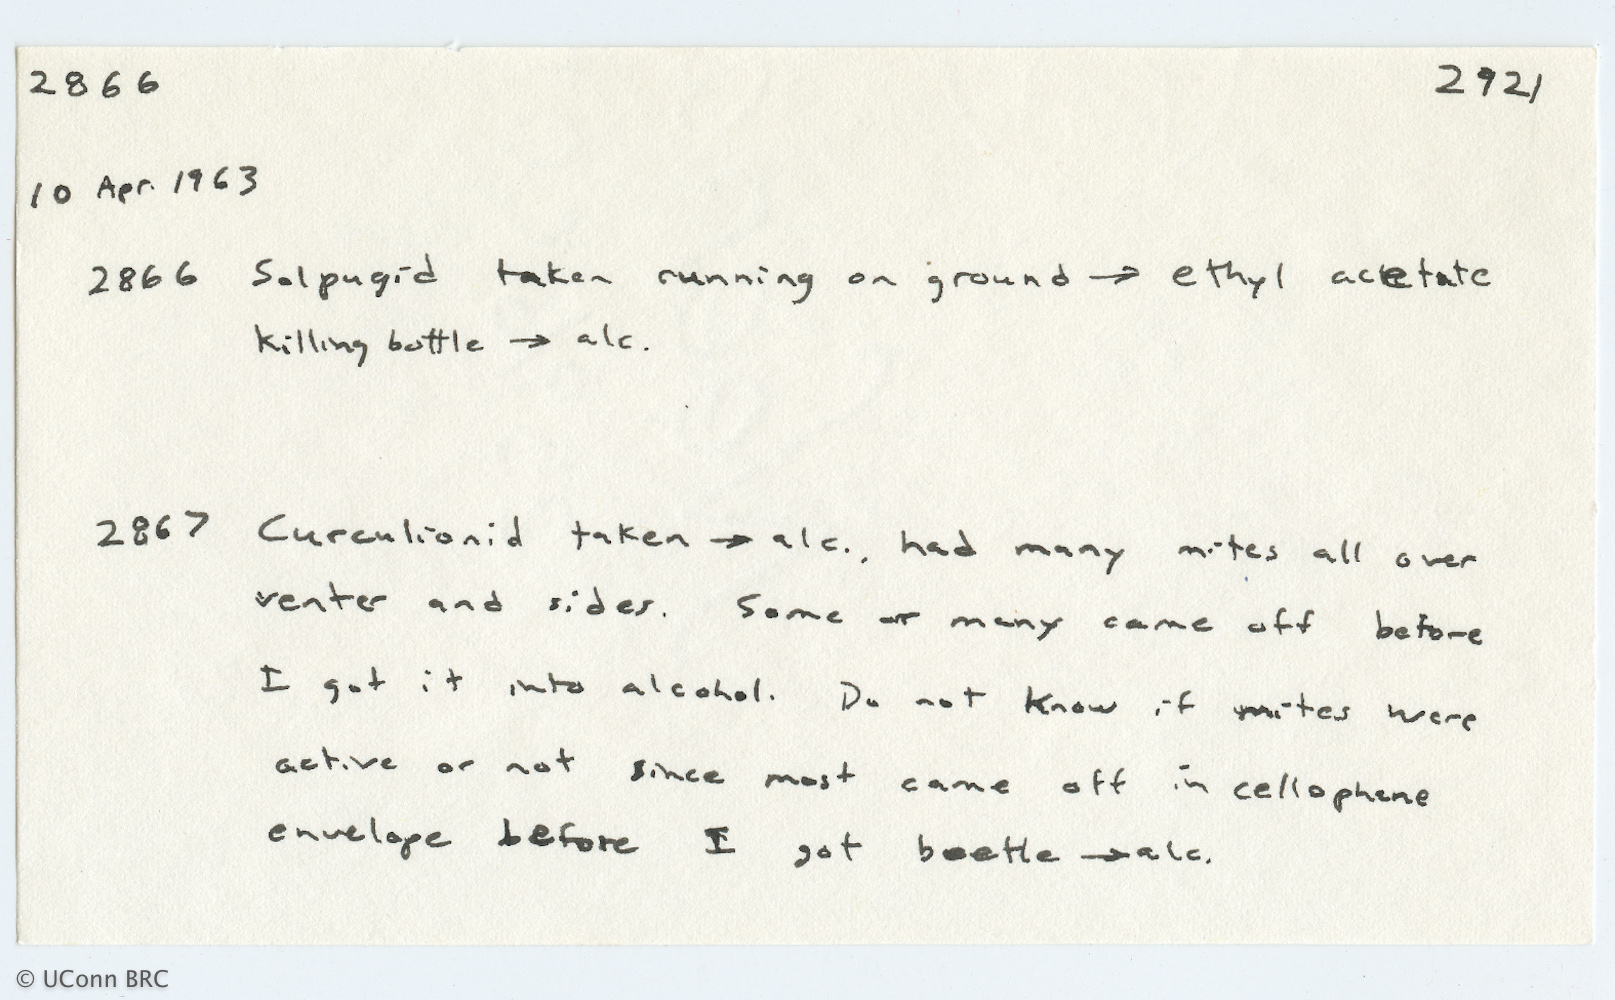 2866 2921
10 Apr. 1963
2866 Solpugid taken running on ground → ethyl acetate
killing bottle → alc.
2867 Curculionid taken → alc., had many mites all over
venter and sides. Some or many came off before
I got it into alcohol. Do not know if mites were
active or not since most came off in cellophane
envelope before I got beetle → alc.
© UConn BRC